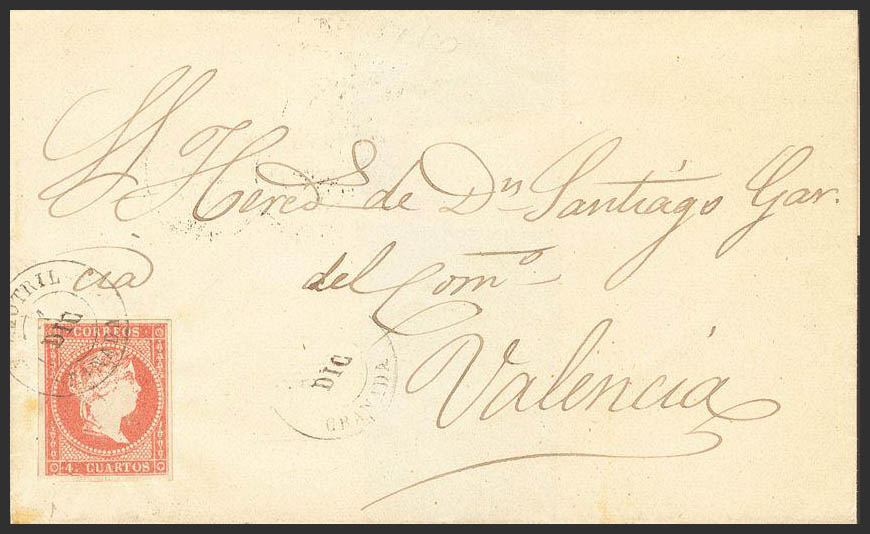 S. S. Hered.s de Dn. Santiágo Gar.
cia del Como.
Valencia
MOTRIL
DIC
GRANADA
CORREOS
4 CUARTOS
DIC
GRANADA